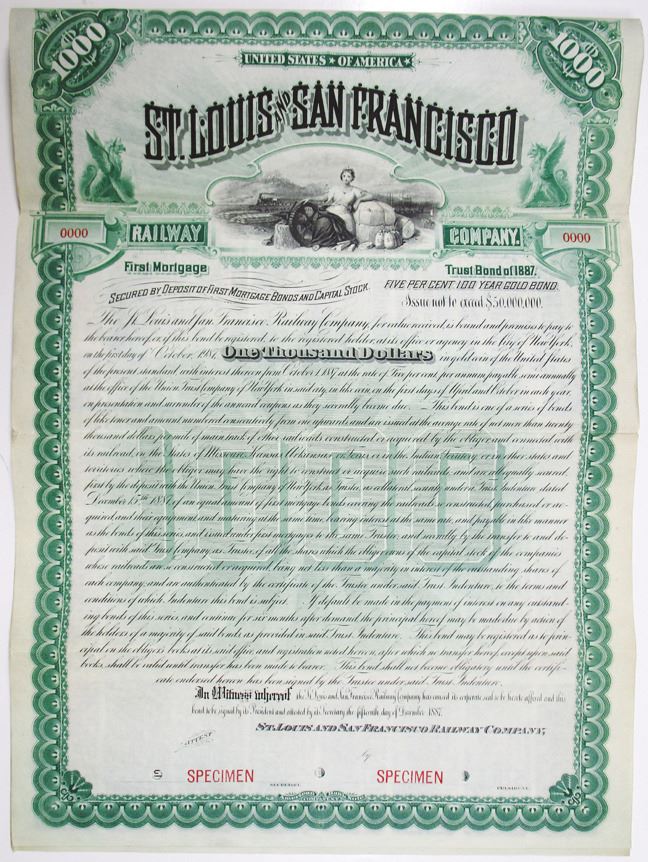 1000 1000
UNITED STATES ★ OF AMERICA ★
ST. LOUIS AND SAN FRANCISCO
0000 RAILWAY COMPANY. 0000
First Mortgage Trust Bond of 1887.
SECURED BY DEPOSIT OF FIRST MORTGAGE BONDS AND CAPITAL STOCK. FIVE PER CENT 100 YEAR GOLD BOND.
Issue not to exceed $50,000,000.
The St. Louis and San Francisco Railway Company, for value received, is bound and promises to pay to
the bearer hereof, or if this bond be registered, to the registered holder, at its office or agency in the City of New York,
on the first day of October, 1987, One Thousand Dollars in gold coin of the United States
of the present standard, with interest thereon from October 1, 1887, at the rate of five per cent per annum, payable semi annually
at the office of the Union Trust Company of New York, in said city, in like coin, on the first days of April and October in each year,
on presentation and surrender of the annexed coupons as they severally become due. This bond is one of a series of bonds
of like tenor and amount, numbered consecutively from one upwards, and are issued at the average rate of not more than twenty
thousand dollars per mile of main track of other railroads constructed or acquired by the obligor and connected with
its railroad in the States of Missouri, Kansas, Arkansas or Texas, or in the Indian Territory, or in other states and
territories where the obligor may have the right to construct or acquire such railroads, and are all equally secured,
first, by the deposit with the Union Trust Company of New York, as Trustee, as additional security under a Trust Indenture dated
December 15th 1887, of an equal amount of first mortgage bonds covering the railroads so constructed, purchased or ac-
quired and their equipment, and maturing at the same time, bearing interest at the same rate, and payable in like manner
as the bonds of this series, and issued under first mortgages to the same Trustee, and secondly, by the transfer to and de-
posit with said Trust Company, as Trustee, of all the shares which the obligor owns of the capital stock of the companies
whose railroads are so constructed or acquired, being not less than a majority in interest of the outstanding shares of
each company, and are authenticated by the certificate of the Trustee under said Trust Indenture, to the terms and
conditions of which Indenture this bond is subject. If default be made in the payment of interest on any outstand-
ing bonds of this series, and continue for six months after demand, the principal hereof may be made due by action of
the holders of a majority of said bonds, as provided in said Trust Indenture. This bond may be registered as to prin-
cipal on the obligor's books at its said office, and registration noted hereon, after which no transfer hereof, except upon said
books, shall be valid until transfer has been made to bearer. This bond shall not become obligatory until the certifi-
cate endorsed hereon has been signed by the Trustee under said Trust Indenture.
In Witness whereof the St. Louis and San Francisco Railway Company has caused its corporate seal to be hereto affixed and this
bond to be signed by its President and attested by its Secretary the fifteenth day of December 1887.
ST. LOUIS AND SAN FRANCISCO RAILWAY COMPANY,
ATTEST
by
SPECIMEN SPECIMEN
SECRETARY. PRESIDENT.